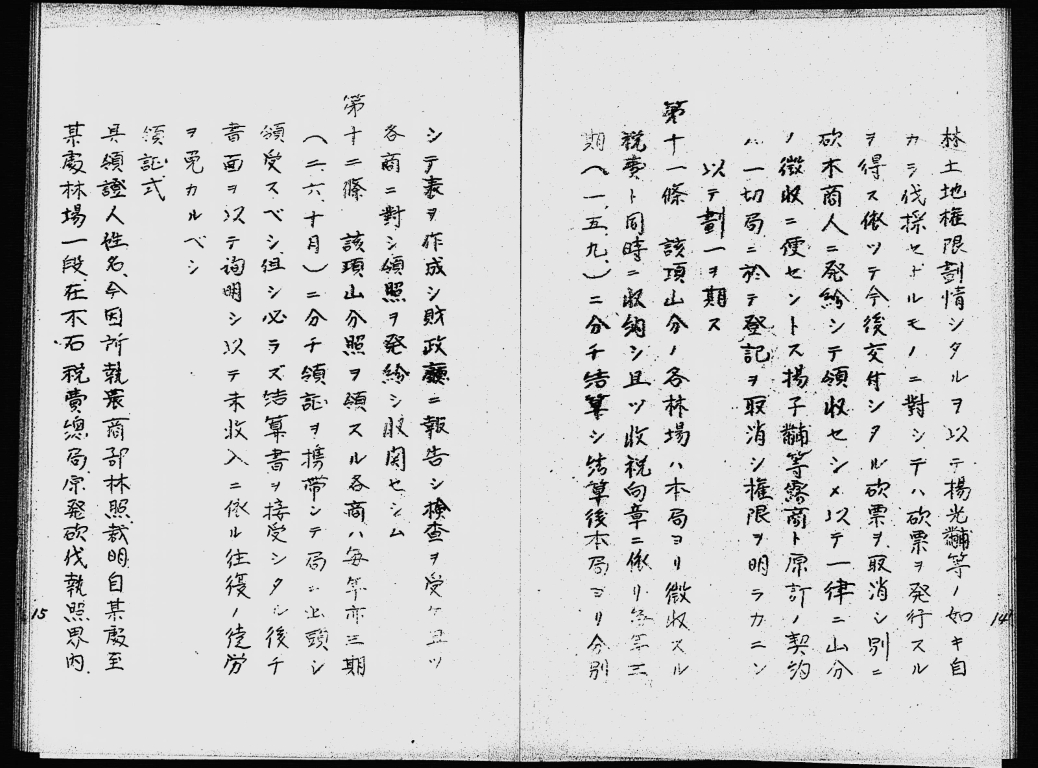 林土地権限劃情シタルヲ以テ揚光黼等ノ如キ自
カラ伐採セドルモノニ對シテハ砍票ヲ発行スル
ヲ得ス依ツテ今後交付シタル砍票ヲ取消シ別ニ
砍木商人ニ発給シテ領収セシメ以テ一律ニ山分
ノ徴收ニ便セントス揚子黼等露商ト原訂ノ契約
ハ一切局ニ於テ登記ヲ取消シ権限ヲ明ラカニシ
以テ劃一ヲ期ス
第十一條 該項山分ノ各林場ハ本局ヨリ徴收スル
税費ト同時ニ収納シ且ツ收税向章ニ依リ毎年三
期(一、五、九、)ニ分チ結算シ結算後本局ヨリ分別
14
シテ表ヲ作成シ財政廳ニ報告シ檢查ヲ受ケ且ツ
各商ニ對シ領照ヲ発給シ收関セシム
第十二條 該項山分照ヲ領スル各商ハ毎年亦三期
(二、六、十月)ニ分チ領証ヲ携帶シテ局ニ出頭シ
領受スベシ但シ必ラズ結算書ヲ接受シタル後チ
書面ヲ以テ詢明シ以テ未收入ニ依ル往復ノ徒労
ヲ免カルベシ
領証式
具領證人姓名、今因所執農商部林照裁明自某處至
某處林場一段、在木石税費總局原発砍伐執照界内、
15